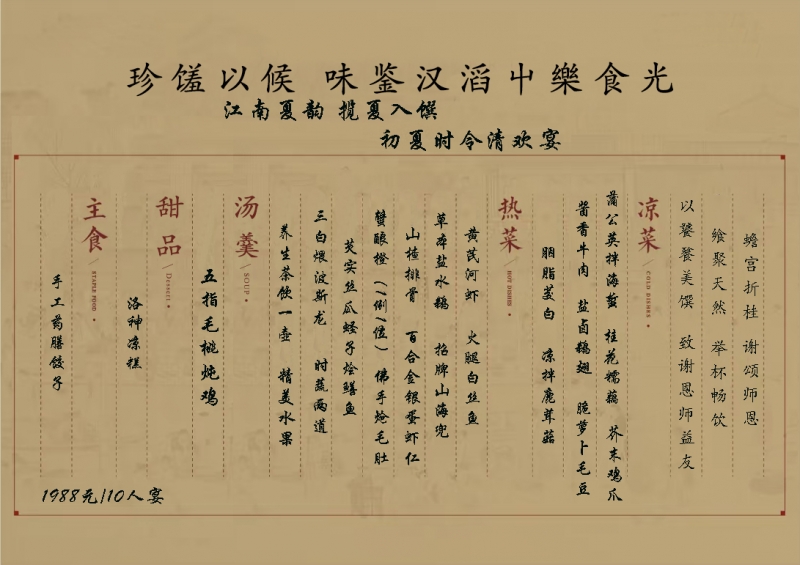 珍馐以候 味鉴汉滔中樂食光
江南夏韵 揽夏入馔
初夏时令清欢宴
蟾宫折桂 谢颂师恩
飨聚天然 举杯畅饮
以饕餮美馔 致谢恩师益友
凉菜
COLD DISHES
蒲公英拌海蜇 桂花糯藕 芥末鸡爪
酱香牛肉 盐卤鹅翅 脆萝卜毛豆
胭脂茭白 凉拌鹿茸菇
热菜
HOT DISHES
黄芪河虾 火腿白丝鱼
草本盐水鹅 招牌山海兜
山楂排骨 百合金银蛋虾仁
蟹酿橙(1例1位) 佛手炝毛肚
芡实丝瓜蛏子烩鳝鱼
三白煨波斯龙 时蔬两道
养生茶饮一壶 精美水果
汤羹
SOUP
五指毛桃炖鸡
甜品
Dessert
洛神凉糕
主食
STAPLE FOOD
手工药膳饺子
1988元/10人宴